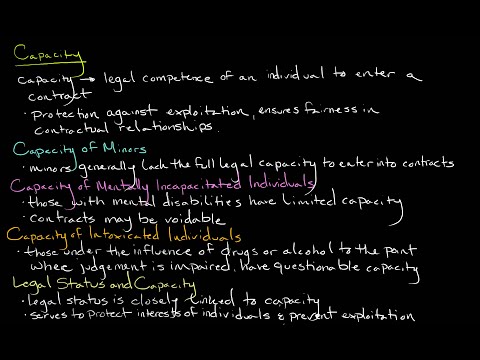 Capacity
Capacity → legal competence of an individual to enter a
contract
· protection against exploitation, ensures fairness in
contractual relationships.
Capacity of Minors
· minors generally lack the full legal capacity to enter into contracts
Capacity of Mentally Incapacitated Individuals
· those with mental disabilities have limited capacity
· contracts may be voidable
Capacity of Intoxicated Individuals
· those under the influence of drugs or alcohol to the point
where judgement is impaired, have questionable capacity
Legal Status and Capacity
· legal status is closely linked to capacity
· serves to protect interests of individuals & prevent exploitation